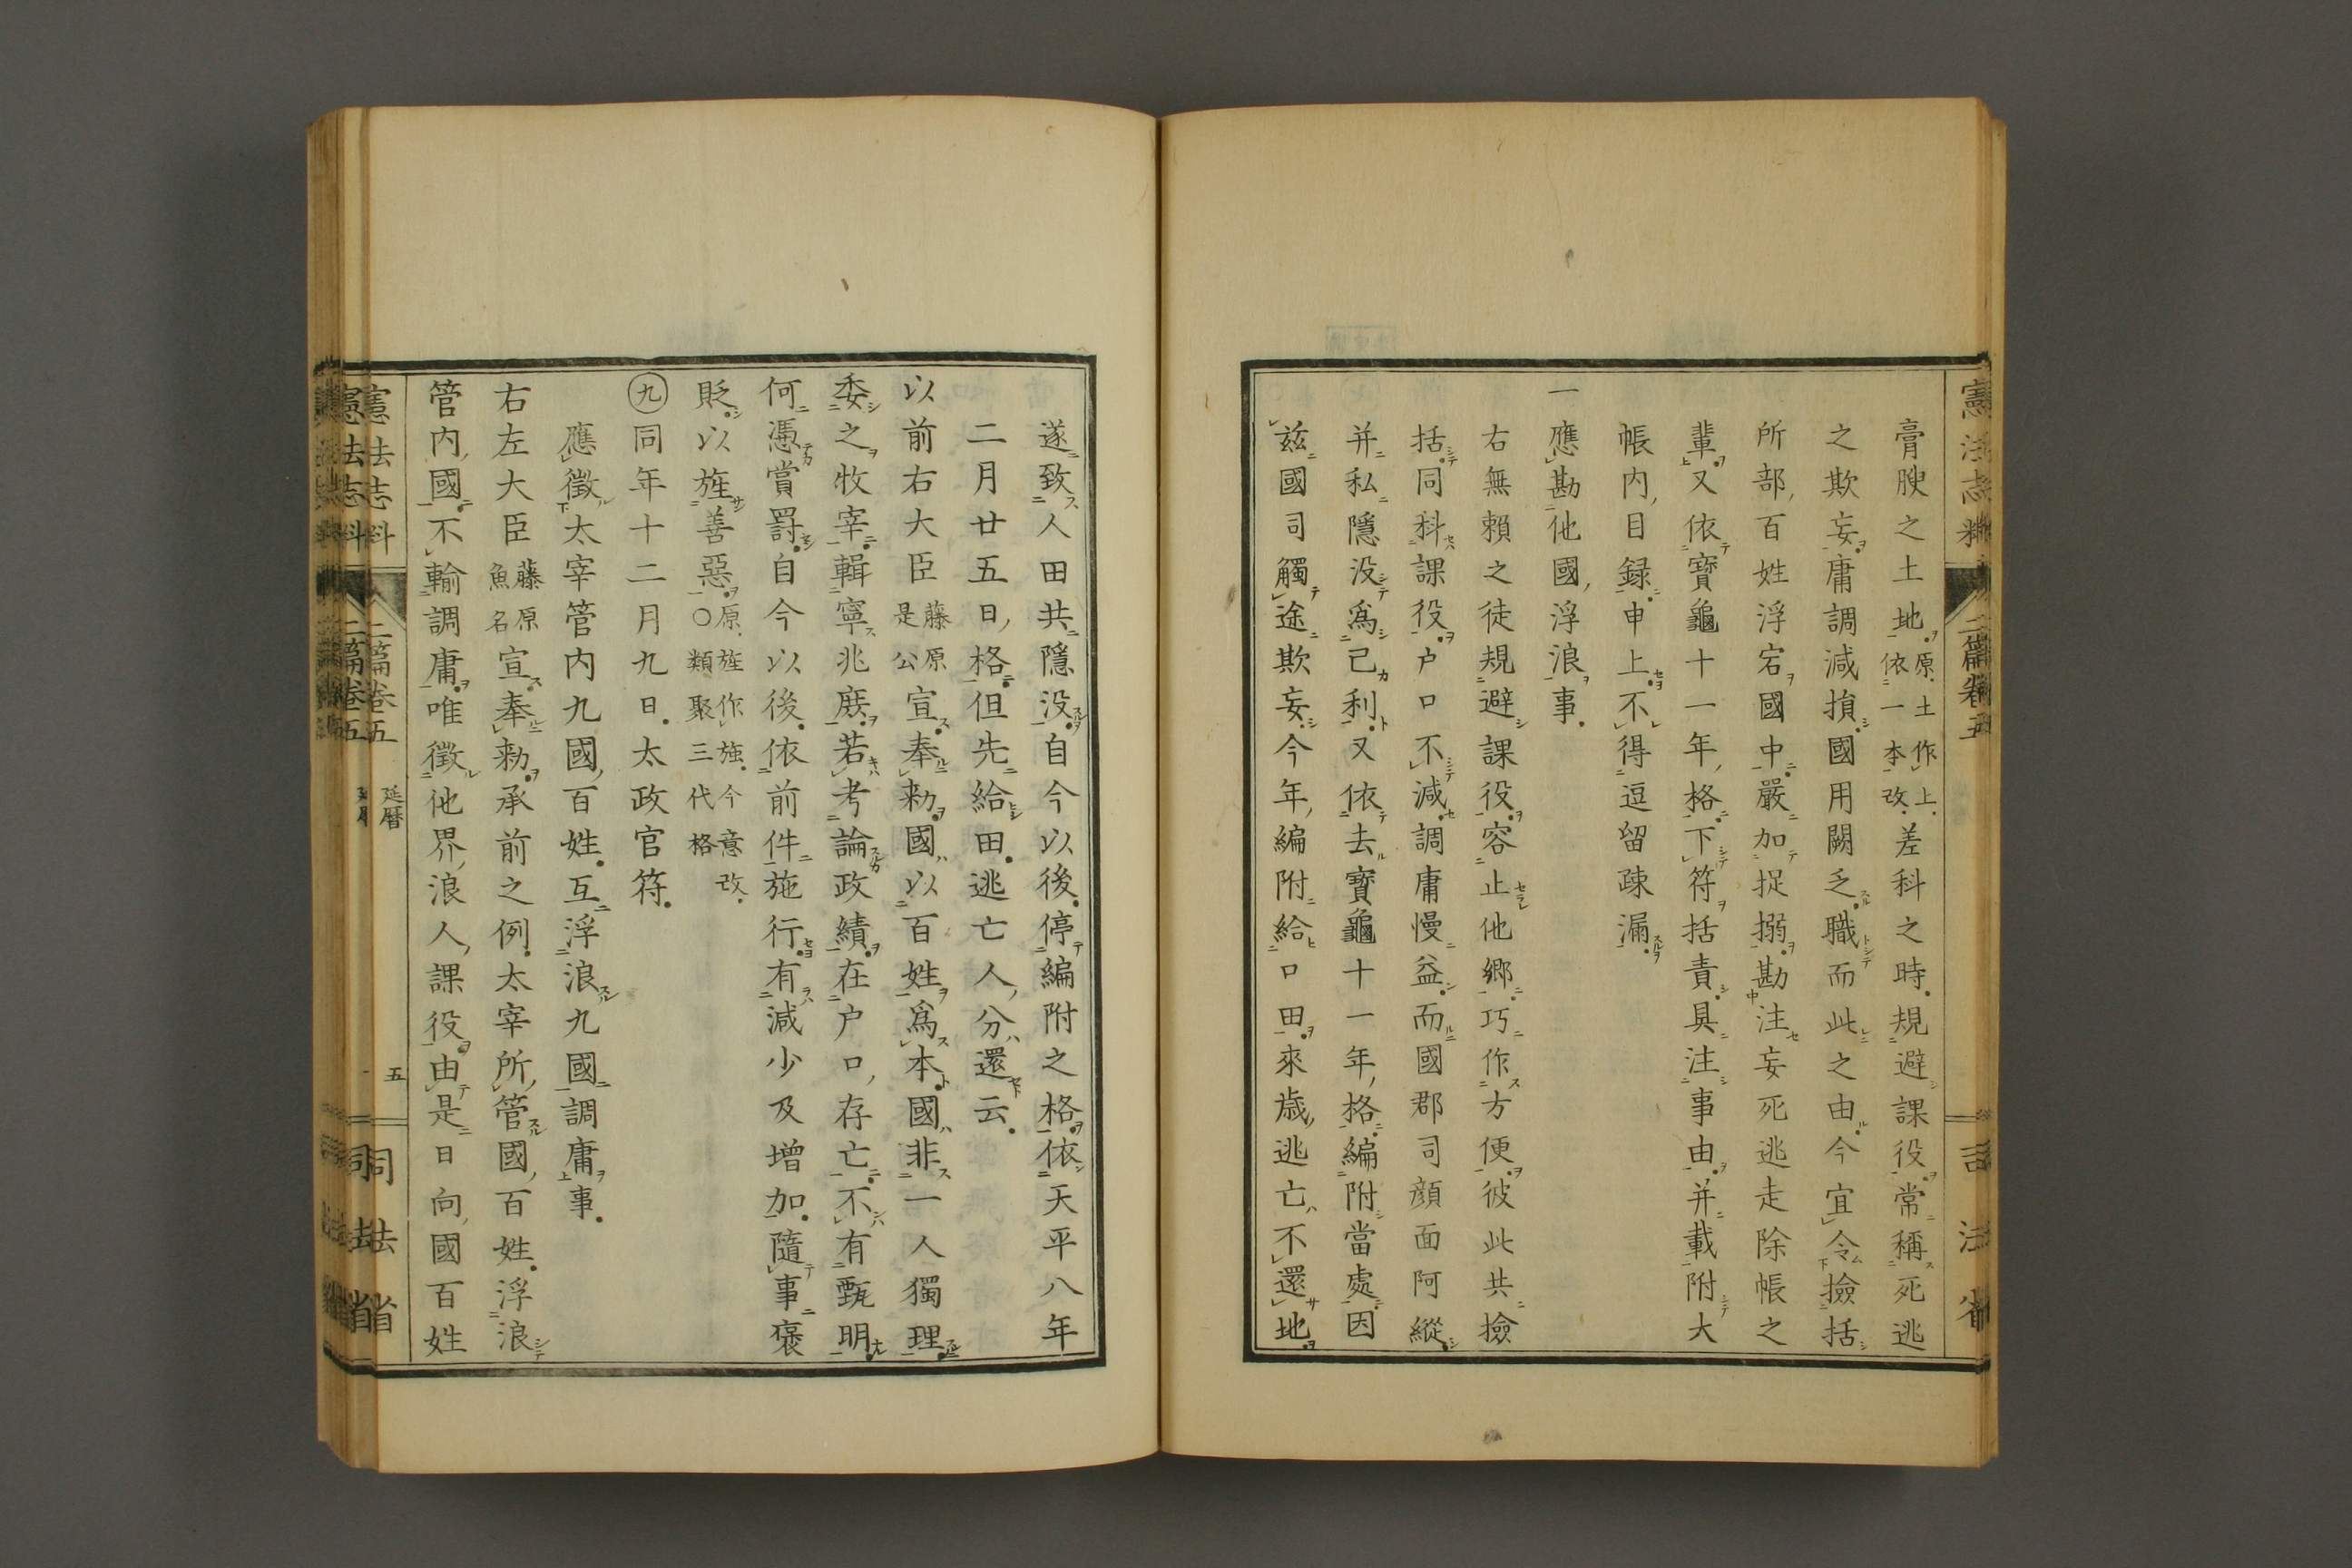 膏腴之土地原土作上依一本改差科之時規避課役常稱死逃
之欺妄庸調減損國用闕乏職而此之由今宜令撿括
所部百姓浮宕國中嚴加捉搦勘注妄死逃走除帳之
輩又依寶龜十一年格下符括責具注事由并載附大
帳内目録申上不得逗留疎漏
一應勘他國浮浪事
右無賴之徒規避課役容止他郷巧作方便彼此共撿
括同科課役户口不減調庸慢益而國郡司顔面阿縱
并私隱没爲己利又依去寶龜十一年格編附當處因
兹國司觸途欺妄今年編附給口田來歳逃亡不還地
遂致人田共隱没自今以後停編附之格依天平八年
二月廿五日格但先給田逃亡人分還云
以前右大臣藤原是公宣奉勅國以百姓爲本國非一人獨理
委之牧宰輯寧兆庶若考論政績在户口存亡不有甄明
何憑賞罸自今以後依前件施行有減少及増加隨事褒
貶以旌善惡原旌作㫋今意改〇類聚三代格
九同年十二月九日太政官符
應徵太宰管内九國百姓互浮浪九國調庸事
右左大臣藤原魚名宣奉勅承前之例太宰所管國百姓浮浪
管内國不輸調庸唯徵他界浪人課役由是日向國百姓
憲法志料 二篇卷五 延暦 五 司法省